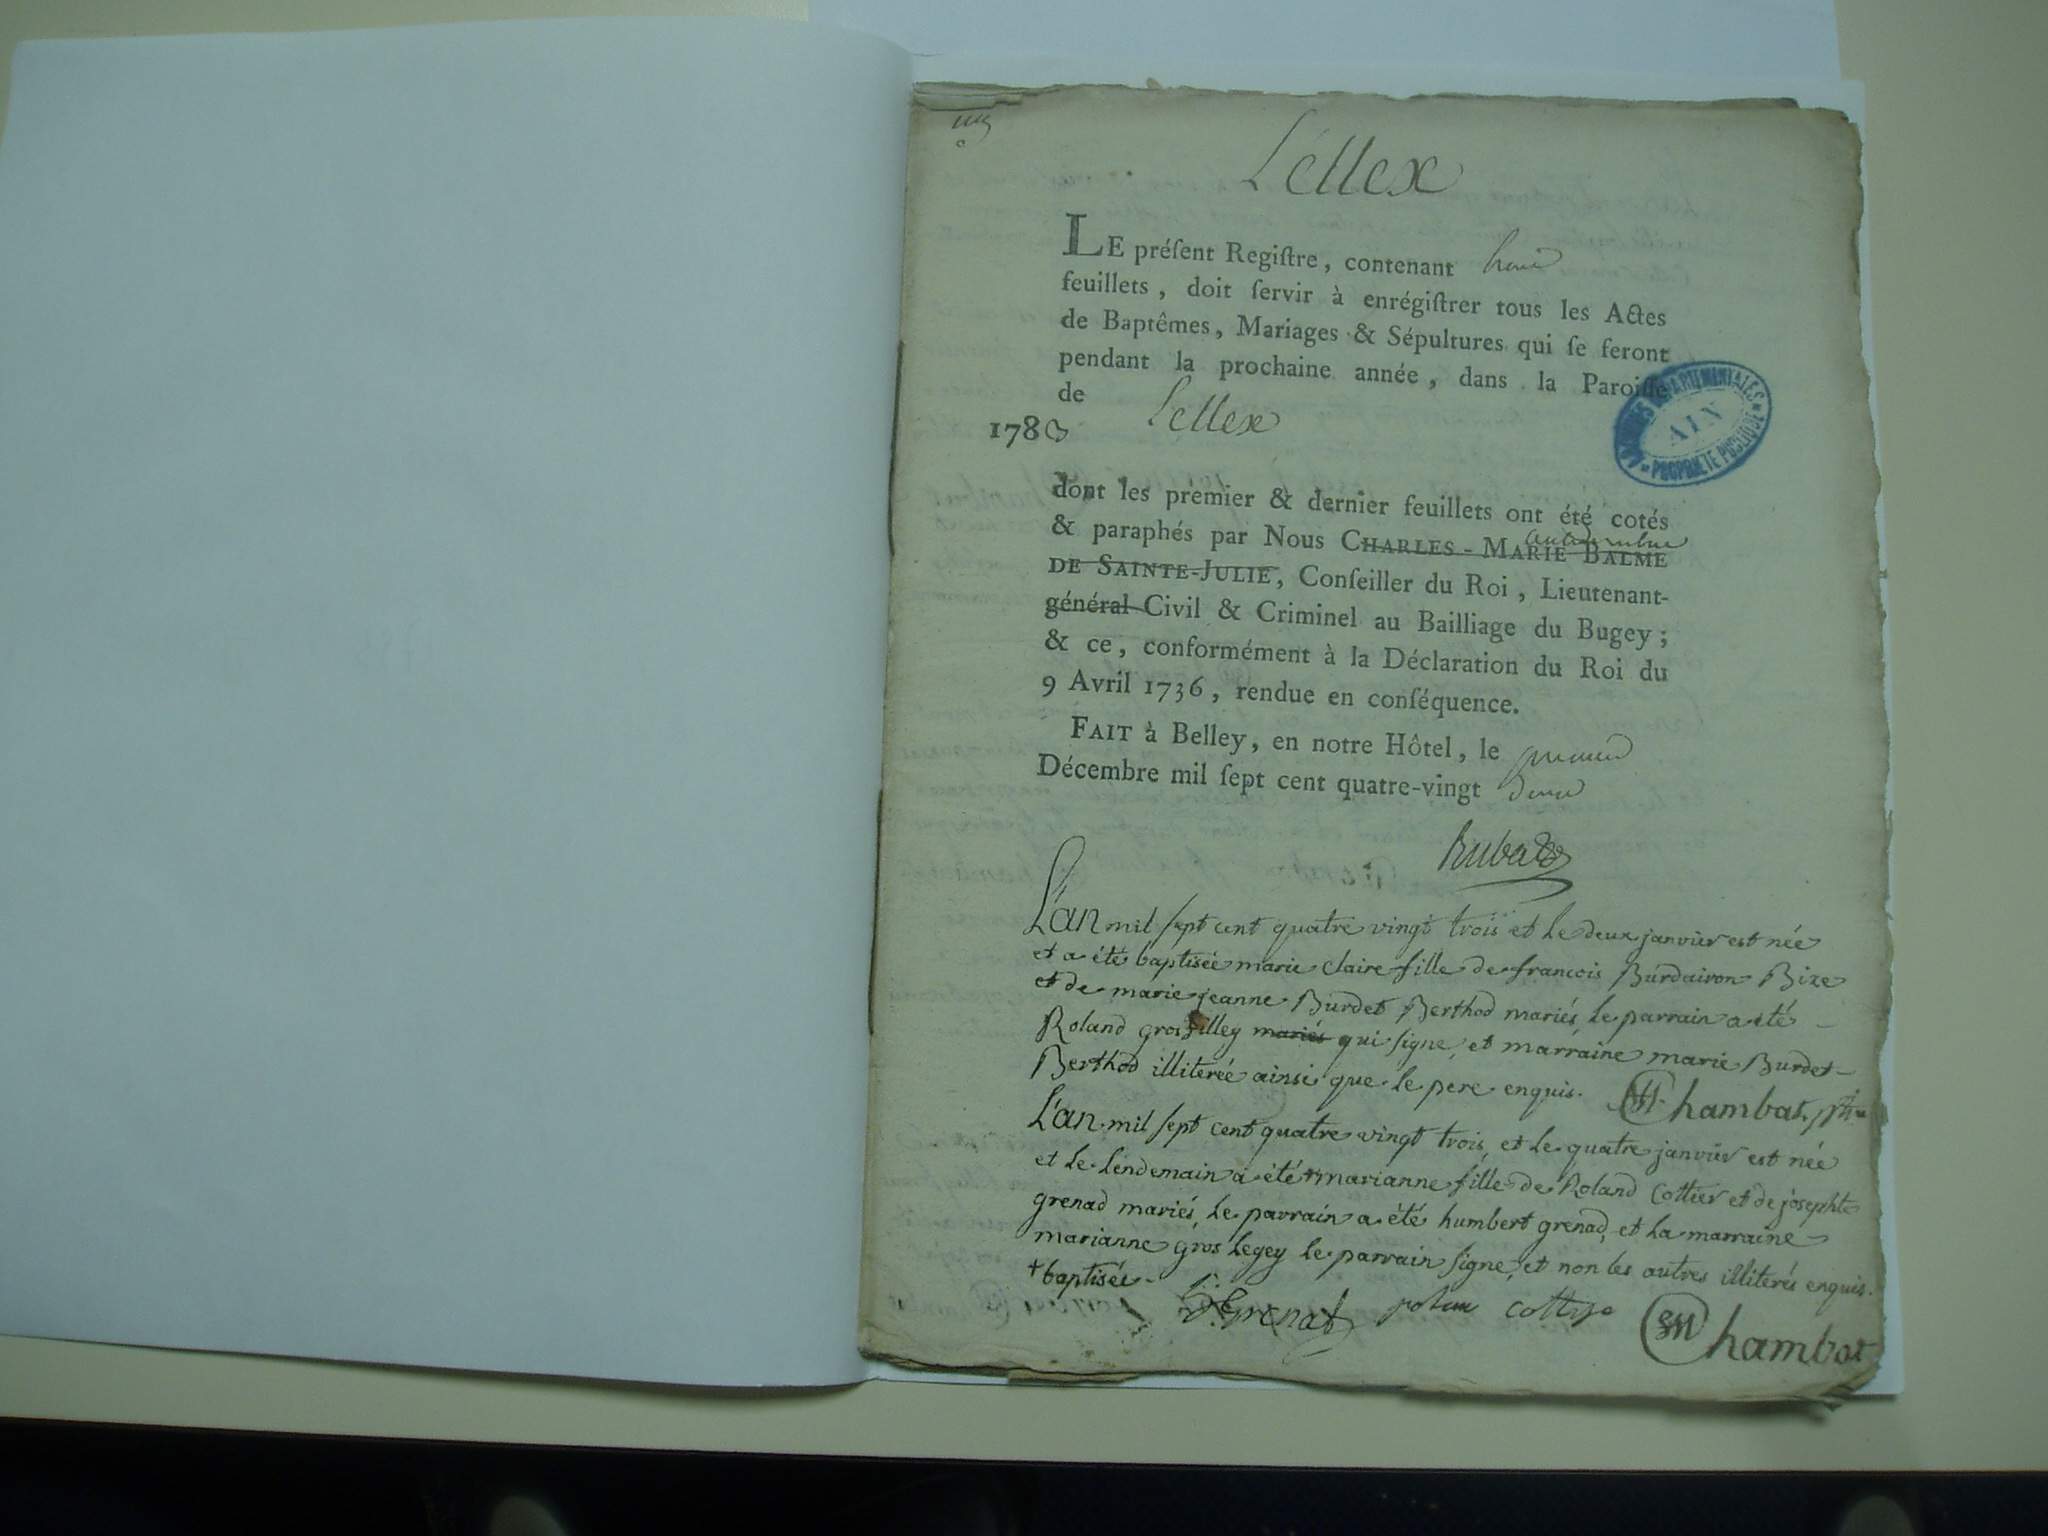 Lellex
LE préſent Regiſtre, contenant huit
feuillets, doit ſervir à enrégiſtrer tous les Actes
de Baptêmes, Mariages & Sépultures qui ſe feront
pendant la prochaine année, dans la Paroiſſe
de Lellex
1783
ARCHIVES DEPARTEMENTALES
AIN
PROPRIETE PUBLIQUE
dont les premier & dernier feuillets ont été cotés
& paraphés par Nous CHARLES-MARIE BALME
DE SAINTE-JULIE, Conſeiller du Roi, Lieutenant-
général Civil & Criminel au Bailliage du Bugey;
& ce, conformément à la Déclaration du Roi du
9 Avril 1736, rendue en conſéquence.
FAIT à Belley, en notre Hôtel, le premier
Décembre mil ſept cent quatre-vingt deux
Rubat
L'an mil sept cent quatre vingt trois et le deux janvier est née
et a été baptisée marie claire fille de francois Burdairon Bize
et de marie jeanne Burdet Berthod mariés, le parrain a été
Roland grosfilley mariés qui signe, et marraine marie Burdet
Berthod illiterée ainsi que le pere enquis. Chambat, ptre
L'an mil sept cent quatre vingt trois, et le quatre janvier est née
et le lendemain a été + marianne fille de Roland Cottier et de josephte
grenad mariés, le parrain a été humbert grenad, et la marraine
marianne gros legey le parrain signe, et non les autres illiterés enquis.
+ baptisée. Grenat Chambat